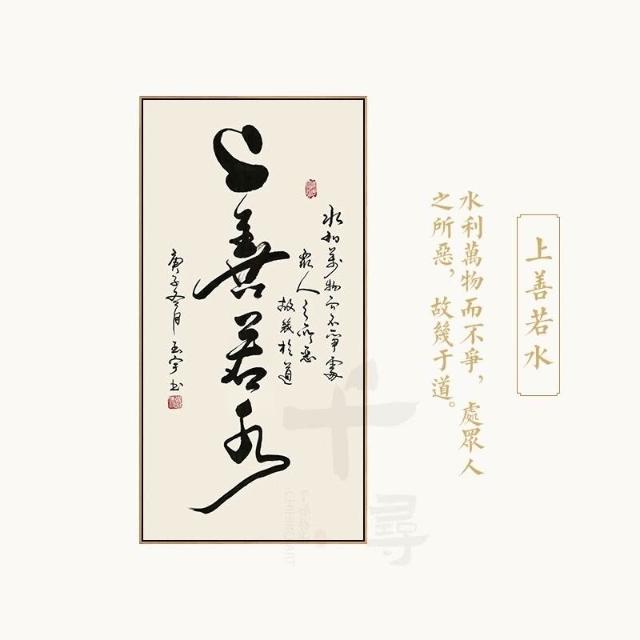 上善若水
水利萬物而不爭，處眾人
之所惡，故幾于道。
水利萬物而不爭處
眾人之所惡
故幾於道
上善若水
庚子冬月
千尋